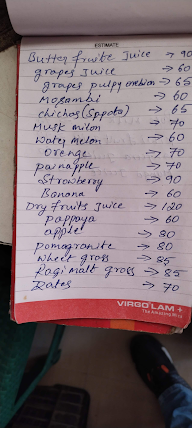 ESTIMATE
Butter fruite Juice → 90
grapes Juice → 60
grapes pulpy → 65
mosambi → 60
chickos (Sppota) → 65
Musk milon → 70
Water melon → 60
Orenge → 70
painapple → 70
Strawberry → 90
Banana → 60
Dry fruits Juice → 120
pappaya → 60
apple → 80
pomogranite → 80
Wheet grass → 85
Ragi malt grass → 85
Dates → 70
VIRGO LAM +
The Amazing Ring